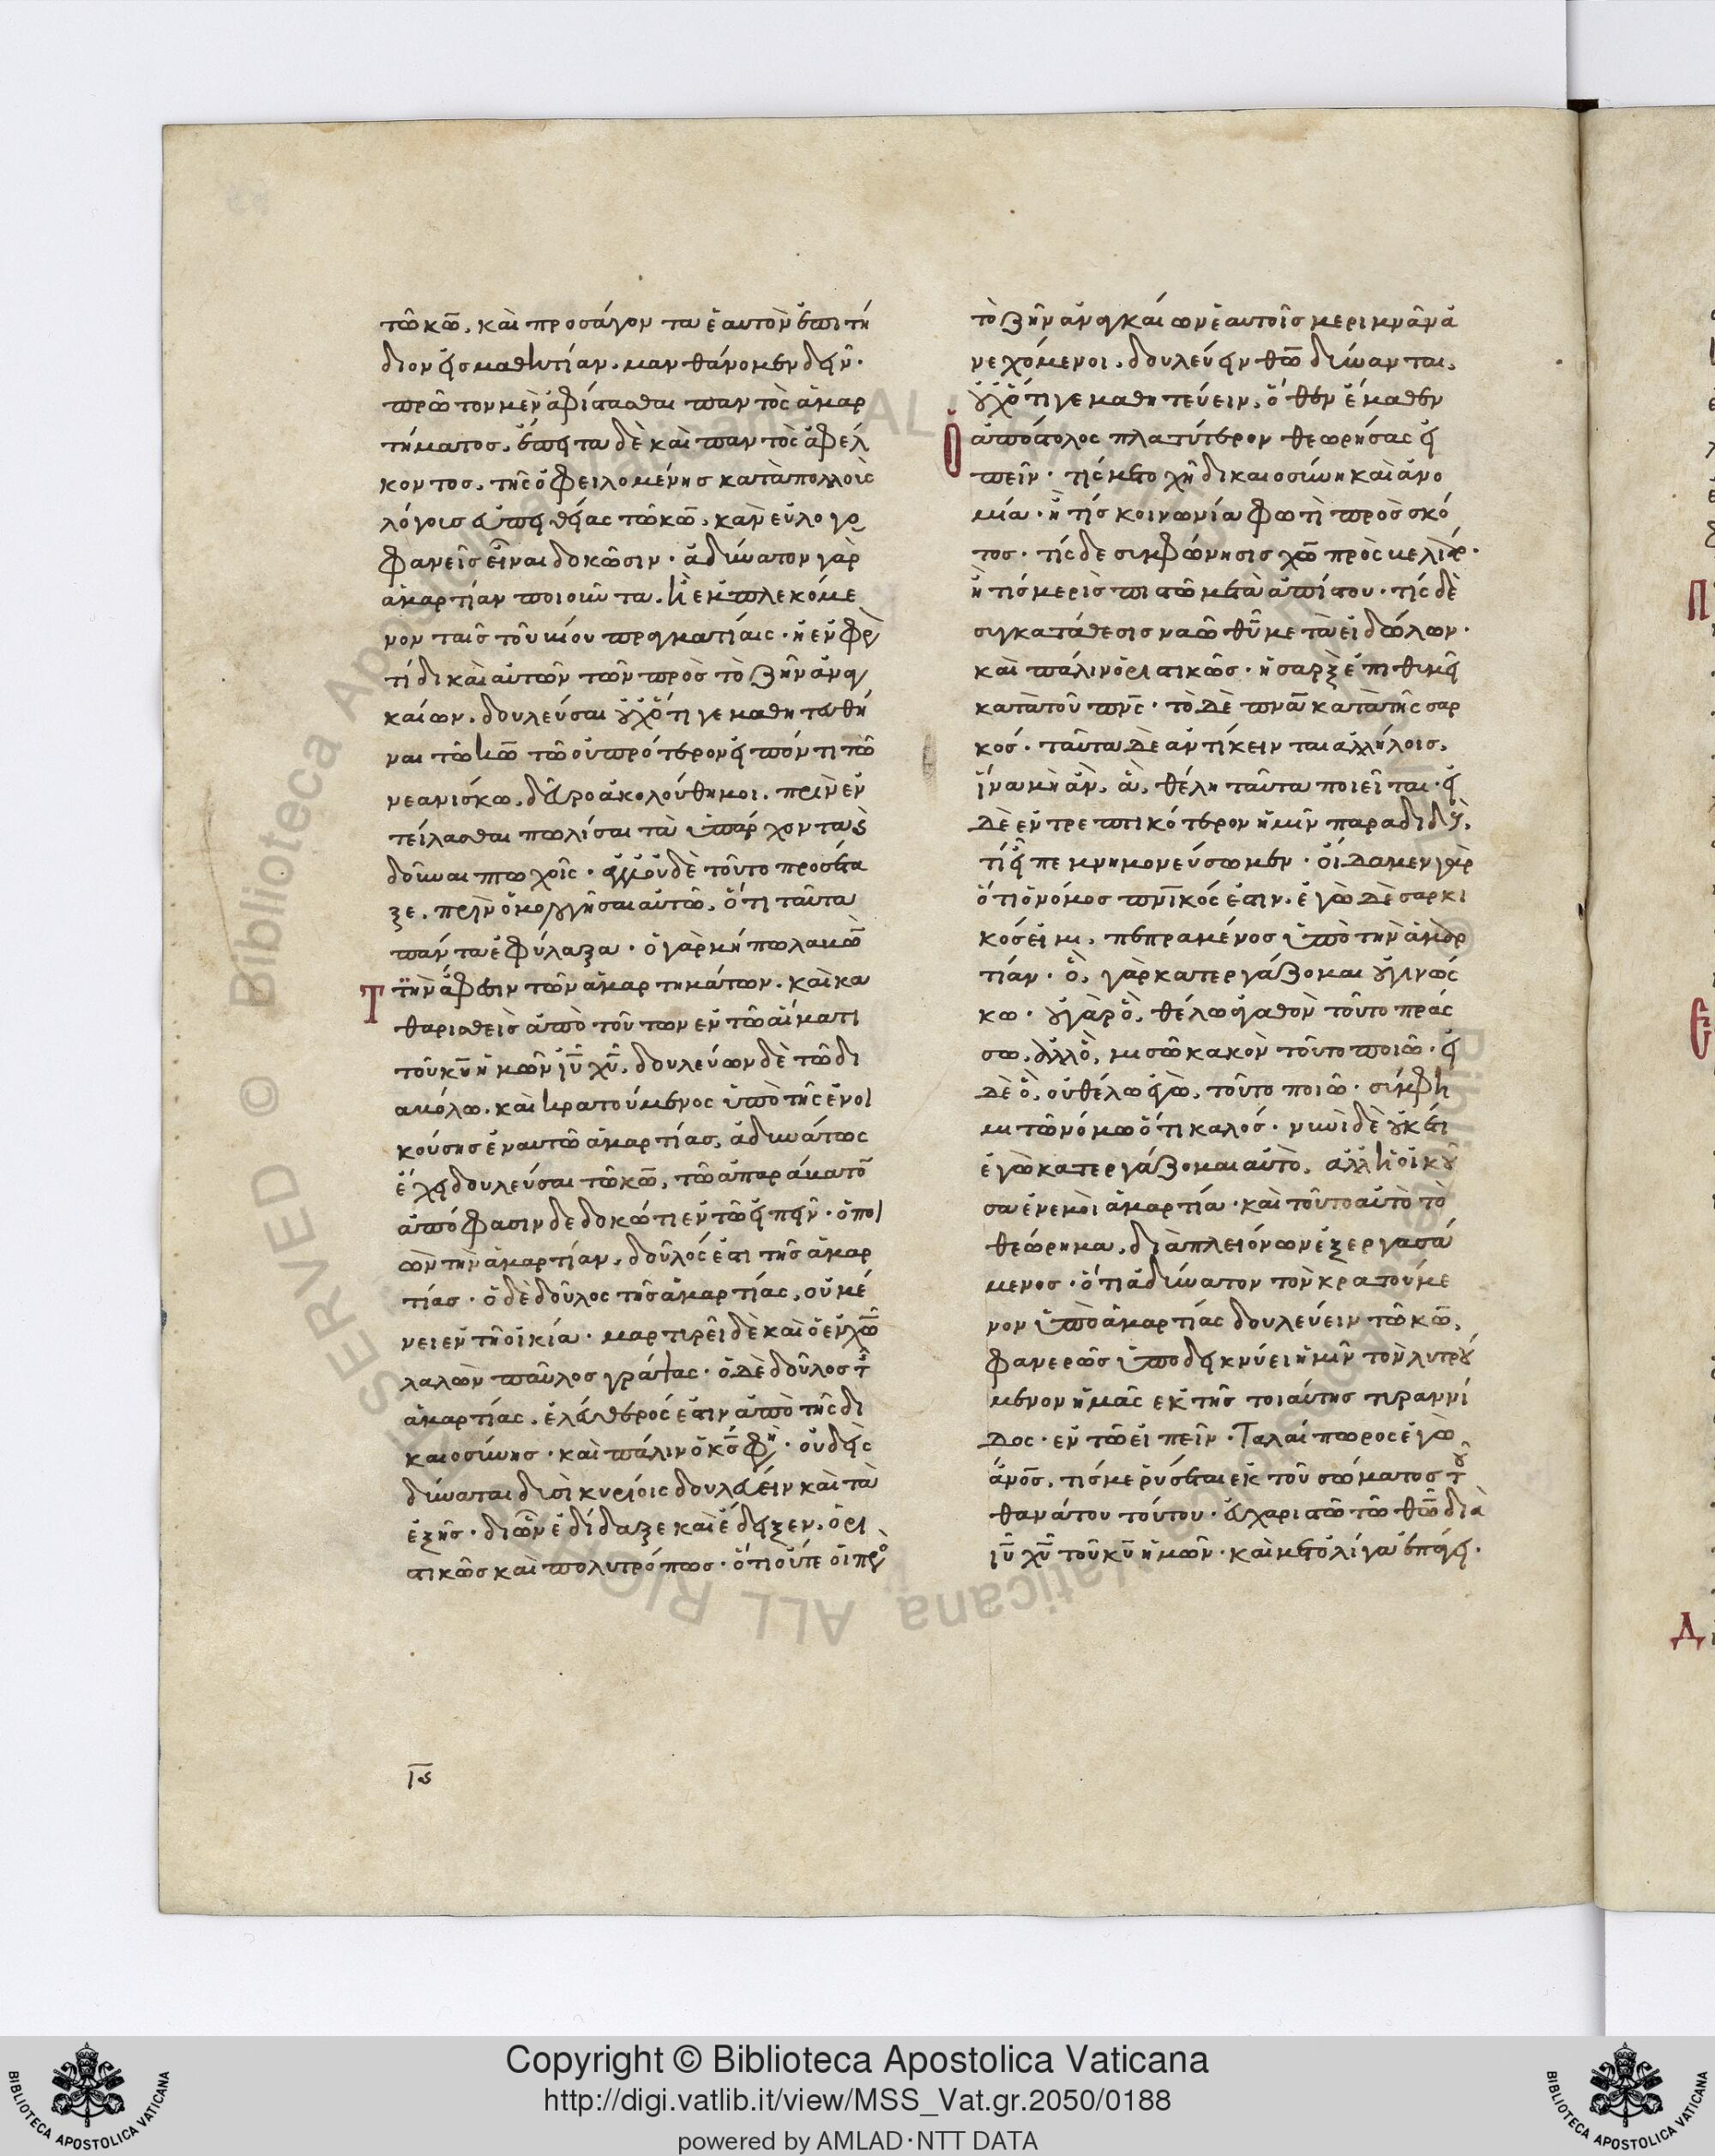 τῶ κῶ, καὶ προσάγοντα ἑαυτὸν ἐπιτή
διον εἰς μαθητίαν. μανθάνομεν δεῖν·
πρῶτον μὲν ἀφίστασθαι παντὸς ἁμαρ
τήματος. ἔπειτα δὲ καὶ παντὸς ἀφέλ
κοντος, τῆς ὀφειλομένης κατὰ πολλοὺς
λόγους εὐπειθείας τῶ κῶ, κἂν εὔλογα
φανεὶς εἶναι δοκῶσιν· ἀδύνατον γὰρ
ἁμαρτίαν ποιοῦντα. ἢ ἐμπλεκόμε
νον ταῖς τοῦ βίου πραγματίαις· ἢ ἐν φρο
τίδι καὶ αὐτῶν τῶν πρὸς τὸ ζῆν ἀναγ
καίων. δουλεῦσαι οὐχότι γε μαθητευθῆ
ναι τῶ κῶ τῶ οὐ πρότερον εἰπόντι τῶ
νεανίσκω, δεῦρο ἀκολούθη μοι. πρὶν ἐν
τείλασθαι πωλῆσαι τὰ ὑπάρχοντα καὶ
δοῦναι πτωχοῖς· ἀλλ' οὐδὲ τοῦτο προσέτα
ξε. πρὶν ὁμολογῆσαι αὐτῶ, ὅτι ταῦτα
πάντα ἐφύλαξα· ὁ γὰρ μήπω λαβὼν
τὴν ἄφεσιν τῶν ἁμαρτημάτων. καὶ κα
θαρισθεὶς ἀπὸ τούτων ἐν τῶ αἵματι
τοῦ κυ ἡμῶν ιυ χυ, δουλεύων δὲ τῶ δι
αβόλω. καὶ κρατούμενος ὑπὸ τῆς ἐνοι
κούσης ἐν αυτῶ ἁμαρτίας, ἀδυνάτως
ἔχει δουλεῦσαι τῶ κῶ, τῶ ἀπαράβατον
ἀπόφασιν δεδοκώτι ἐν τῶ εἰπεῖν· ὁ ποι
ῶν τὴν ἁμαρτίαν, δοῦλός ἐστι τῆς ἁμαρ
τίας· ὁ δὲ δοῦλος τῆς ἁμαρτίας, οὐ μέ
νει ἐν τῆ οἰκία· μαρτυρεῖ δὲ καὶ ὁ ἐν χῶ
λαλῶν παῦλος γράψας· ὁ δὲ δοῦλος τῆς
ἁμαρτίας, ἐλεύθερός ἐστιν ἀπὸ τῆς δι
καιοσύνης· καὶ πάλιν ὁ κς φη· οὐδεὶς
δύναται δυσὶ κυρίοις δουλεύειν καὶ τὰ
ἑξῆς· δι ὧν ἐδίδαξε καὶ ἔδειξεν, ὁρι
στικῶς καὶ πολυτρόπως· ὅτι οὔτε οἱ προ
ιϛ
τὸ ζῆν ἀναγκαίων ἑαυτοῖς μεριμνᾶν ἀ
νεχόμενοι, δουλεύειν θῶ δύνανται,
οὐχότι γε μαθητεύειν, ὅθεν ἔμαθεν
Ὁ ἀπόστολος πλατύτερον θεωρήσας εἰ
πεῖν· τίς μετοχὴ δικαιοσύνη καὶ ἀνο
μία· ἢ τίς κοινωνία φωτὶ πρὸς σκό
τος· τίς δε συμφώνησις χῶ πρὸς βελίαρ·
ἢ τίς μερὶς πιστῶ μετὰ ἀπίστου· τίς δὲ
συγκατάθεσις ναῶ θυ μετὰ εἰδώλων·
καὶ πάλιν ὁριστικῶς· ἡ σαρξ ἐπιθυμεῖ
κατὰ τοῦ πνς· τὸ δὲ πνα κατὰ τῆς σαρ
κός· ταῦτα δὲ ἀντίκεινται ἀλλήλοις,
ἵνα μὴ ἂν, ἃ, θέλη ταῦτα ποιεῖται· εἰ
δὲ ἐντρεπτικότερον ἡμῖν παραδίδω,
τί ἐπεμνημονεύσωμεν· οἴδαμεν γὰρ
ὅτι ὁ νόμος πνικός ἐστιν. ἐγὼ δὲ σαρκι
κός εἰμι, πεπραμένος ὑπὸ τὴν ἁμαρ
τίαν· ὃ, γὰρ κατεργάζομαι οὐ γινώς
κω· οὐ γὰρ ὃ, θέλω ἀγαθὸν τοῦτο πράς
σω, ἀλλ' ὃ, μισῶ κακὸν τοῦτο ποιῶ· εἰ
δὲ ὃ, οὐ θέλω ἐγὼ, τοῦτο ποιῶ· σύμφη
μι τῶ νόμω ὅτι καλός· νυνὶ δὲ οὐκέτι
ἐγὼ κατεργάζομαι αὐτὸ, ἀλλ' ἡ οἰκοῦ
σα ἐν ἐμοὶ ἁμαρτία· καὶ τοῦτο αὐτὸ τὸ
θεώρημα, διὰ πλειόνων ἐξεργασά
μενος· ὅτι ἀδύνατον τὸν κρατούμε
νον ὑπὸ ἁμαρτίας δουλεύειν τῶ κῶ,
φανερῶς ὑποδεικνύει ἡμῖν τὸν λυτρού
μενον ἡμᾶς ἐκ τῆς τοιαύτης τυραννί
δος· ἐν τῶ εἰπεῖν· Ταλαίπωρος ἐγὼ
ἄνος, τίς με ῥύσεται ἐκ τοῦ σώματος τοῦ
θανάτου τούτου· εὐχαριστῶ τῶ θῶ διὰ
ιυ χυ τοῦ κυ ἡμῶν· καὶ μετ' ὀλίγα ἐπάγει·
Copyright © Biblioteca Apostolica Vaticana
http://digi.vatlib.it/view/MSS_Vat.gr.2050/0188
powered by AMLAD·NTT DATA